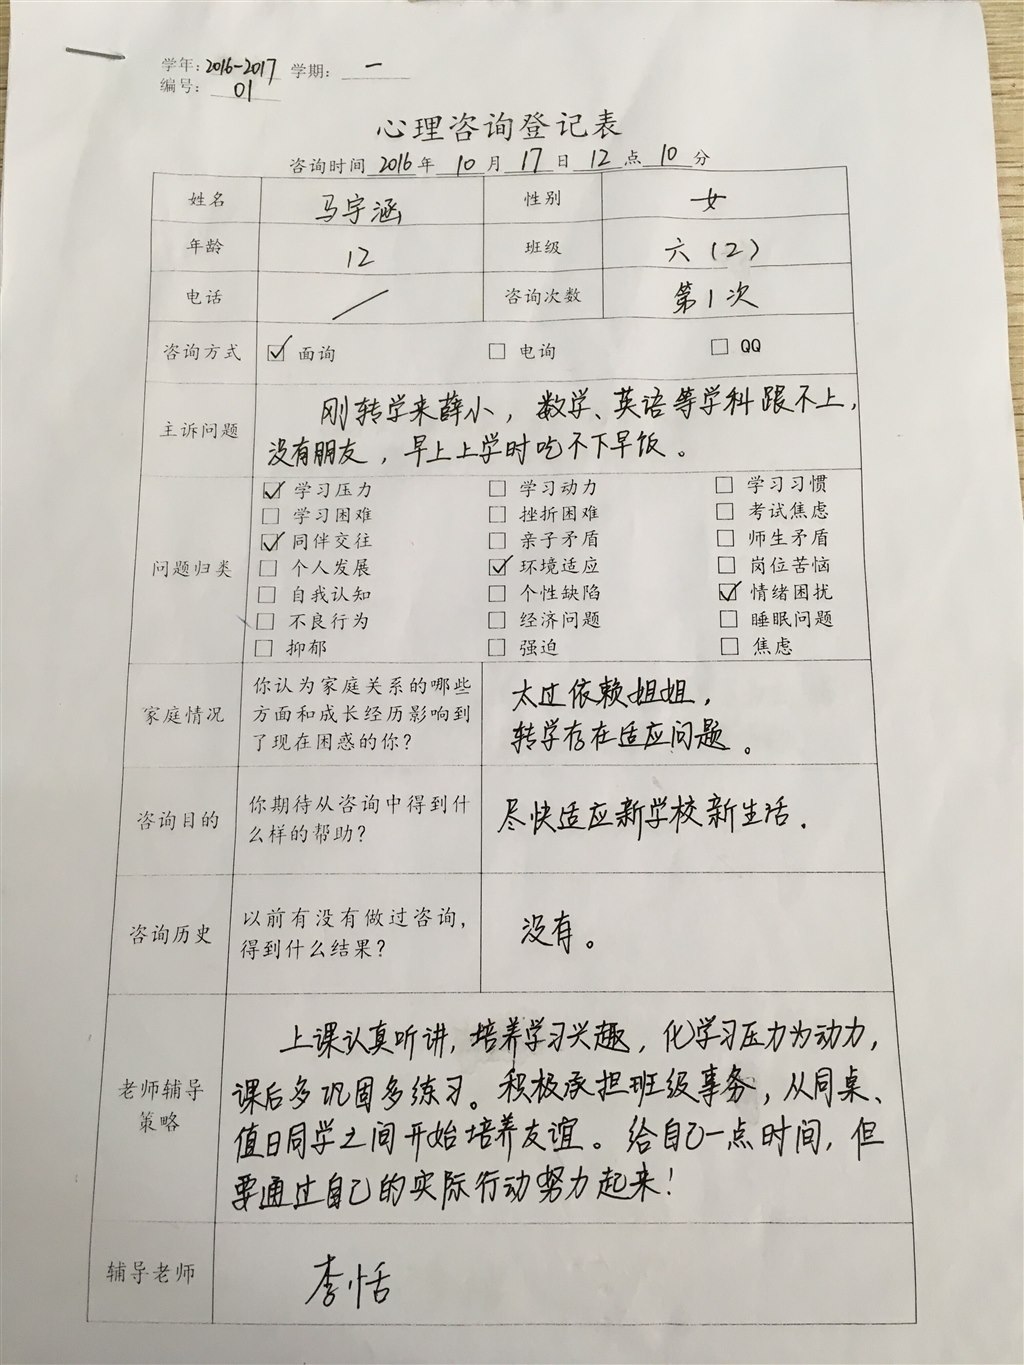 学年：2016-2017 学期：一
编号：01
心理咨询登记表
咨询时间 2016 年 10 月 17 日 12 点 10 分
姓名 马宇涵 性别 女
年龄 12 班级 六（2）
电话 / 咨询次数 第1次
咨询方式 ☑ 面询 □ 电询 □ QQ
主诉问题
刚转学来薛小，数学、英语等学科跟不上，
没有朋友，早上上学时吃不下早饭。
问题归类
☑ 学习压力 □ 学习动力 □ 学习习惯
□ 学习困难 □ 挫折困难 □ 考试焦虑
☑ 同伴交往 □ 亲子矛盾 □ 师生矛盾
□ 个人发展 ☑ 环境适应 □ 岗位苦恼
□ 自我认知 □ 个性缺陷 ☑ 情绪困扰
□ 不良行为 □ 经济问题 □ 睡眠问题
□ 抑郁 □ 强迫 □ 焦虑
家庭情况
你认为家庭关系的哪些
方面和成长经历影响到
了现在困惑的你？
太过依赖姐姐，
转学存在适应问题。
咨询目的
你期待从咨询中得到什
么样的帮助？
尽快适应新学校新生活.
咨询历史
以前有没有做过咨询，
得到什么结果？
没有。
老师辅导
策略
上课认真听讲，培养学习兴趣，化学习压力为动力，
课后多巩固多练习。积极承担班级事务，从同桌、
值日同学之间开始培养友谊。给自己一点时间，但
要通过自己的实际行动努力起来！
辅导老师 李恬